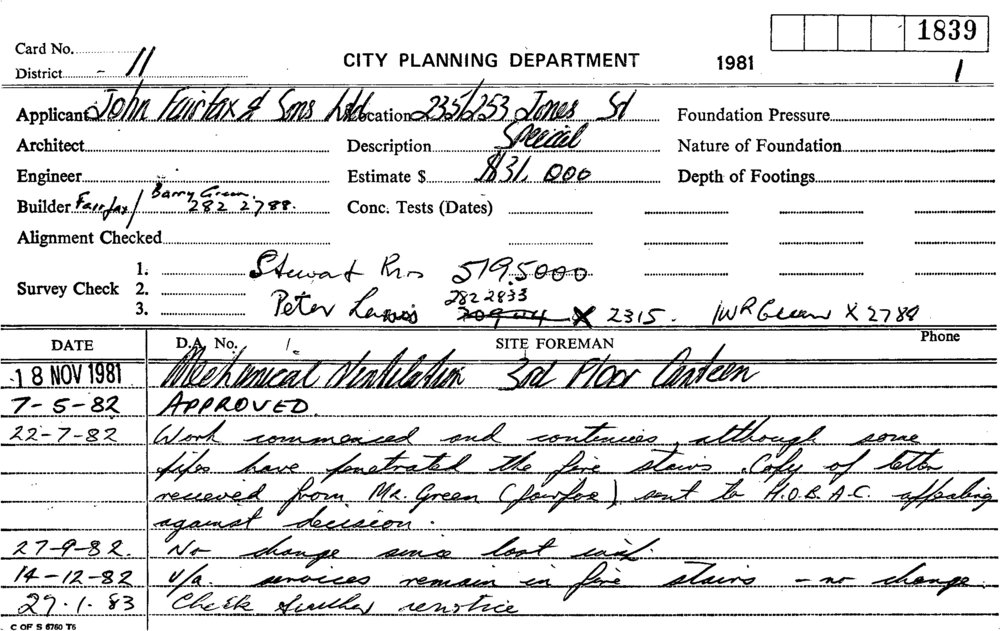 1839
Card No. 11
CITY PLANNING DEPARTMENT 1981
District - 1
Applicant John Fairfax & Sons Ltd Location 235/253 Jones St Foundation Pressure
Architect Description Special Nature of Foundation
Engineer Estimate $ $131,000 Depth of Footings
Builder Fairfax / Barry Green 282 2788. Conc. Tests (Dates)
Alignment Checked
1. Stewart Bros 519.5000
Survey Check 2. 282 2833
3. Peter Lewis X 2315. WR Green X 2788
DATE D.A. No. 1. SITE FOREMAN Phone
18 NOV 1981 Mechanical Ventilation 3rd Floor Canteen
7-5-82 APPROVED.
22-7-82 Work commenced and continues, although some
pipes have penetrated the fire stairs. Copy of letter
recieved from Mr. Green (fairfax) sent to H.O.B.A.C. appealing
against decision.
27-9-82. No change since last visit.
14-12-82 v/a. services remain in fire stairs - no change.
27.1.83 Check further
C OF S 6760 T6